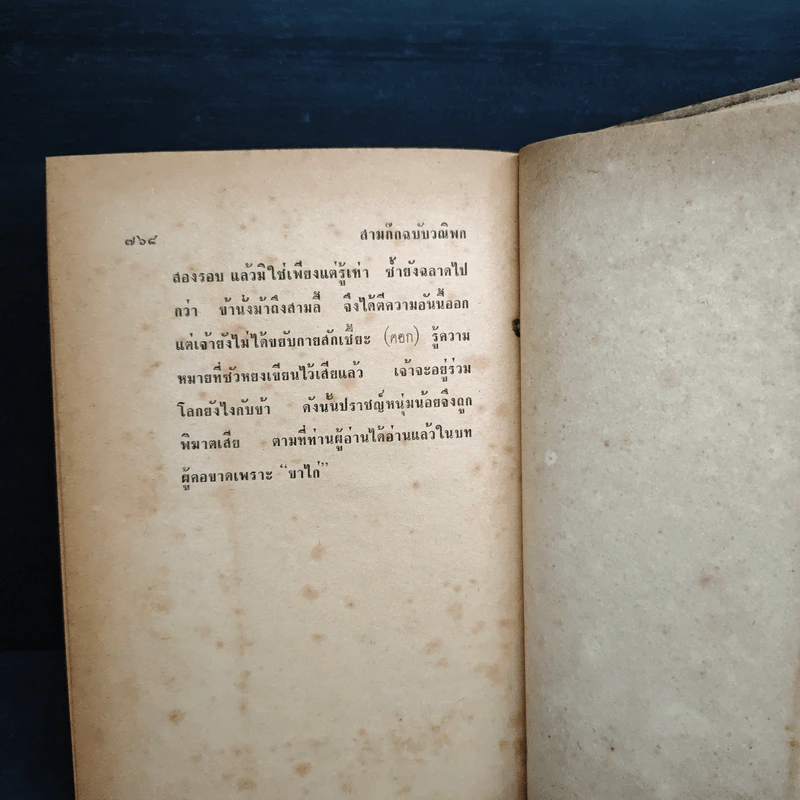 ๗๖๘ สามก๊กฉบับวณิพก
สองรอบ แล้วมิใช่เพียงแต่รู้เท่า ซ้ำยังฉลาดไป
กว่า ข้านั่งม้าถึงสามลี้ จึงได้ตีความอันนี้ออก
แต่เจ้ายังไม่ได้ขยับกายสักเชี๊ยะ (ศอก) รู้ความ
หมายที่ชัวหยงเขียนไว้เสียแล้ว เจ้าจะอยู่ร่วม
โลกยังไงกับข้า ดังนั้นปราชญ์หนุ่มน้อยจึงถูก
พิฆาตเสีย ตามที่ท่านผู้อ่านได้อ่านแล้วในบท
ผู้คอขาดเพราะ “ขาไก่”